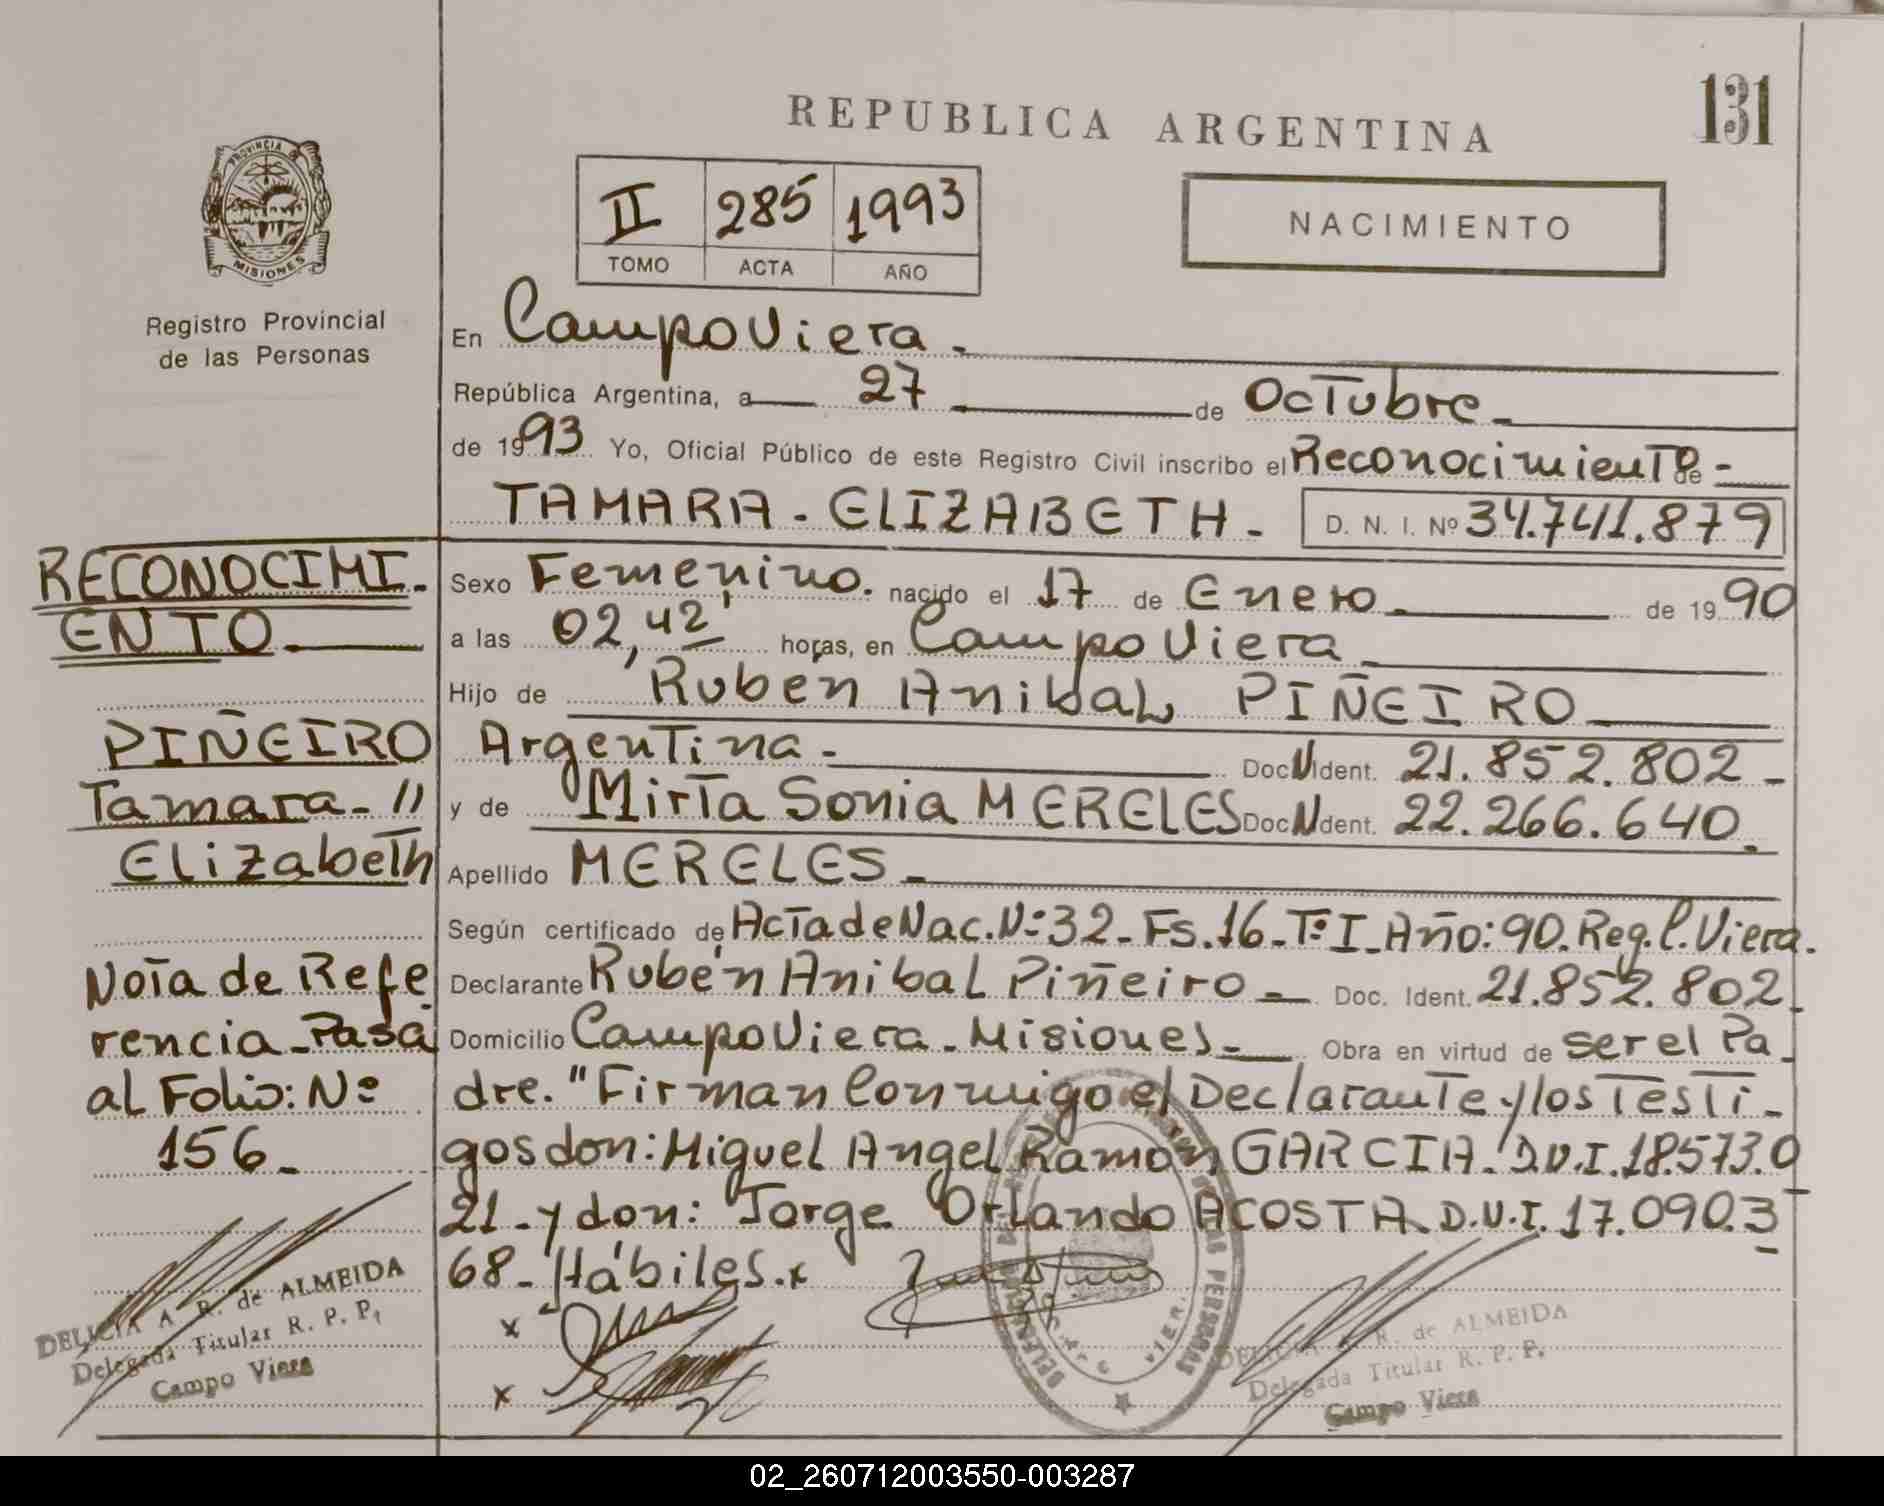 131
REPUBLICA ARGENTINA
PROVINCIA
MISIONES
Registro Provincial
de las Personas
II 285 1993
TOMO ACTA AÑO
NACIMIENTO
En Campo Viera.
República Argentina, a 27 de Octubre
de 1993 Yo, Oficial Público de este Registro Civil inscribo el Reconocimiento de
TAMARA - ELIZABETH - D. N. I. Nº 34.741.879
Sexo Femenino. nacido el 17 de Enero de 1990
a las 02,42' horas, en Campo Viera
Hijo de Ruben Anibal PIÑEIRO
Argentina - Doc N Ident. 21.852.802 -
y de Mirta Sonia MERELES Doc N Ident. 22.266.640.
Apellido MERELES
Según certificado de Acta de Nac. Nº: 32 - Fs. 16 - Tº I - Año: 90. Reg. C. Viera.
Declarante Rubén Anibal Piñeiro - Doc. Ident. 21.852.802
Domicilio Campo Viera - Misiones - Obra en virtud de ser el Pa-
dre. "Firman Conmigo el Declarante y los Testi-
gos don: Miguel Angel Ramón GARCIA. D.N.I. 18.573.0
21 - y don: Jorge Orlando ACOSTA. D.N.I. 17.090.3
68 - Hábiles. x
x
x
RECONOCIMI-
ENTO
PIÑEIRO
Tamara - "
Elizabeth
Nota de Refe
rencia - Pasa
al Folio: Nº
156 -
DELICIA A R. de ALMEIDA
Delegada Titular R. P. P.
Campo Viera
DELICIA A R. de ALMEIDA
Delegada Titular R. P. P.
Campo Viera
02_260712003550-003287